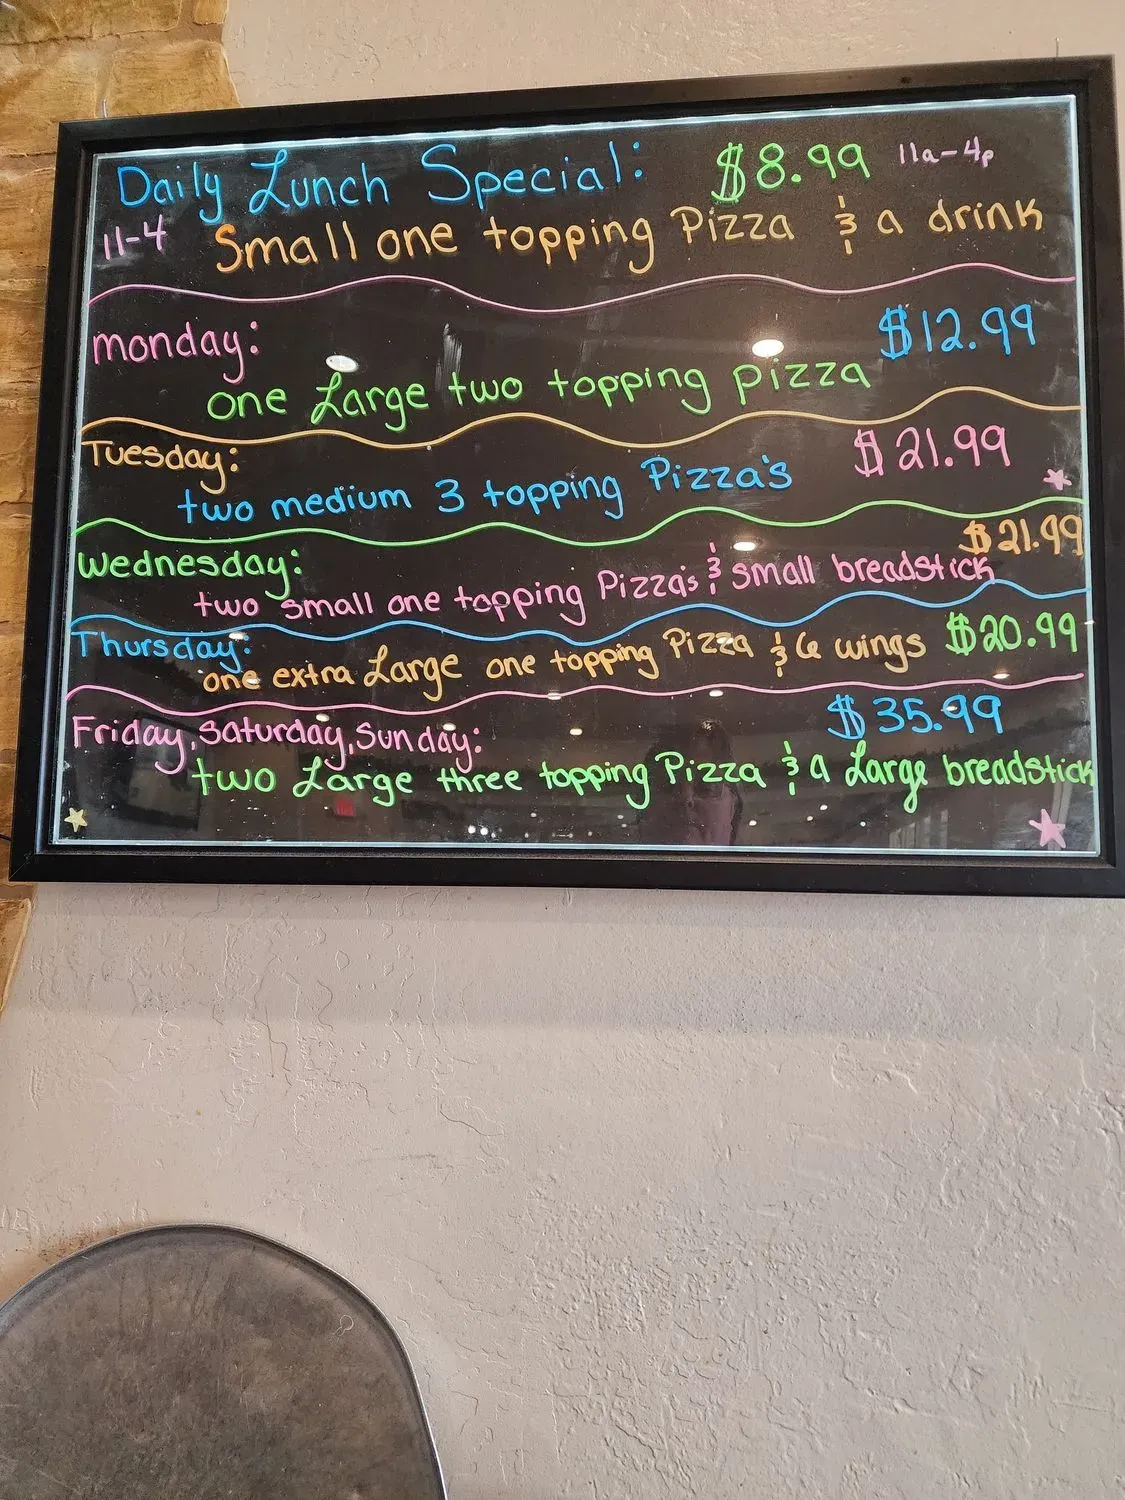 Daily Lunch Special: $8.99 11a-4p
11-4 Small one topping Pizza & a drink
monday: $12.99
one Large two topping pizza
Tuesday: $21.99
two medium 3 topping Pizza's
Wednesday: $21.99
two small one topping Pizza's & small breadstick
Thursday: $20.99
one extra Large one topping Pizza & 6 wings
Friday, Saturday, Sunday: $35.99
two Large three topping Pizza & a Large breadstick